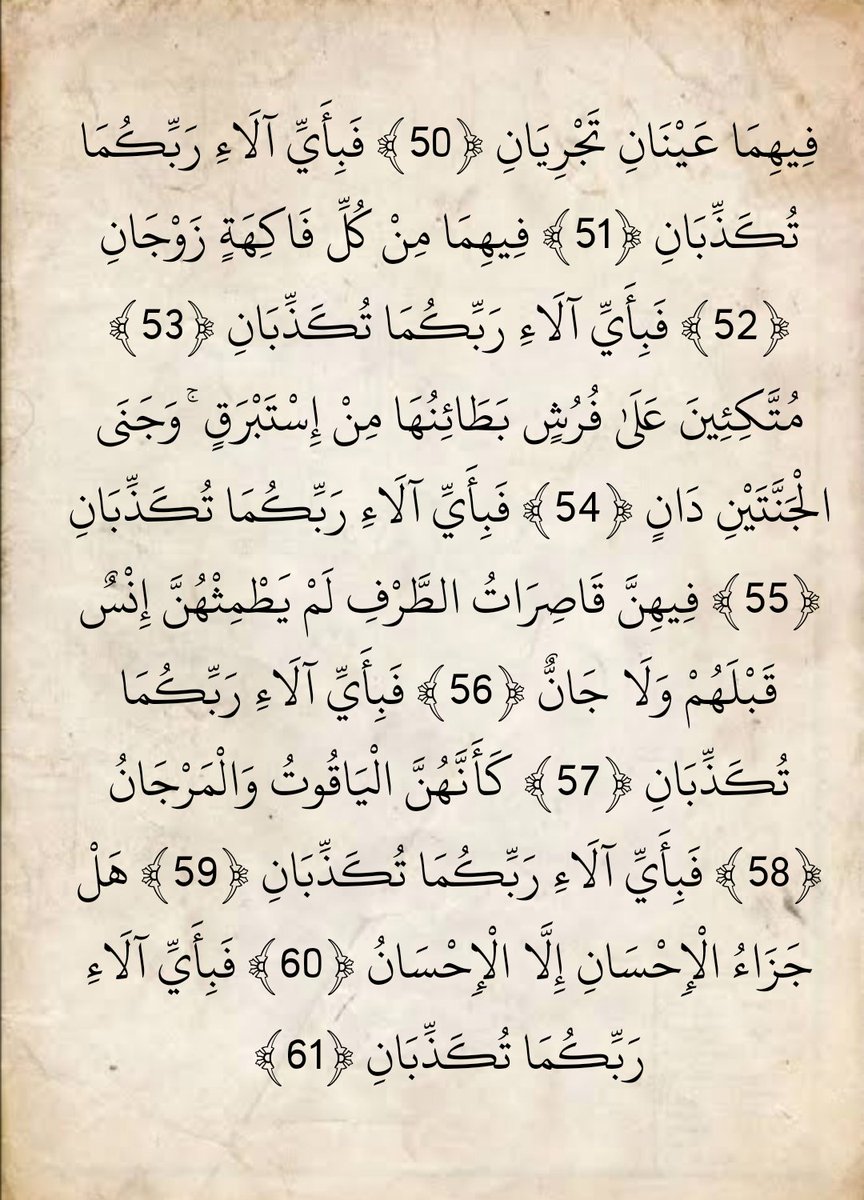 فِيهِمَا عَيْنَانِ تَجْرِيَانِ ﴿50﴾ فَبِأَيِّ آلَاءِ رَبِّكُمَا
تُكَذِّبَانِ ﴿51﴾ فِيهِمَا مِنْ كُلِّ فَاكِهَةٍ زَوْجَانِ
﴿52﴾ فَبِأَيِّ آلَاءِ رَبِّكُمَا تُكَذِّبَانِ ﴿53﴾
مُتَّكِئِينَ عَلَىٰ فُرُشٍ بَطَائِنُهَا مِنْ إِسْتَبْرَقٍ ۚ وَجَنَى
الْجَنَّتَيْنِ دَانٍ ﴿54﴾ فَبِأَيِّ آلَاءِ رَبِّكُمَا تُكَذِّبَانِ
﴿55﴾ فِيهِنَّ قَاصِرَاتُ الطَّرْفِ لَمْ يَطْمِثْهُنَّ إِنْسٌ
قَبْلَهُمْ وَلَا جَانٌّ ﴿56﴾ فَبِأَيِّ آلَاءِ رَبِّكُمَا
تُكَذِّبَانِ ﴿57﴾ كَأَنَّهُنَّ الْيَاقُوتُ وَالْمَرْجَانُ
﴿58﴾ فَبِأَيِّ آلَاءِ رَبِّكُمَا تُكَذِّبَانِ ﴿59﴾ هَلْ
جَزَاءُ الْإِحْسَانِ إِلَّا الْإِحْسَانُ ﴿60﴾ فَبِأَيِّ آلَاءِ
رَبِّكُمَا تُكَذِّبَانِ ﴿61﴾